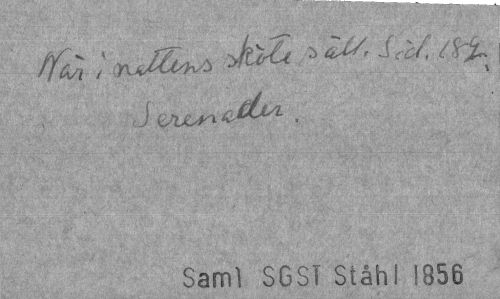 När i nattens sköte säll. Sid. 182.
Serenader.
Saml SGST Ståhl 1856